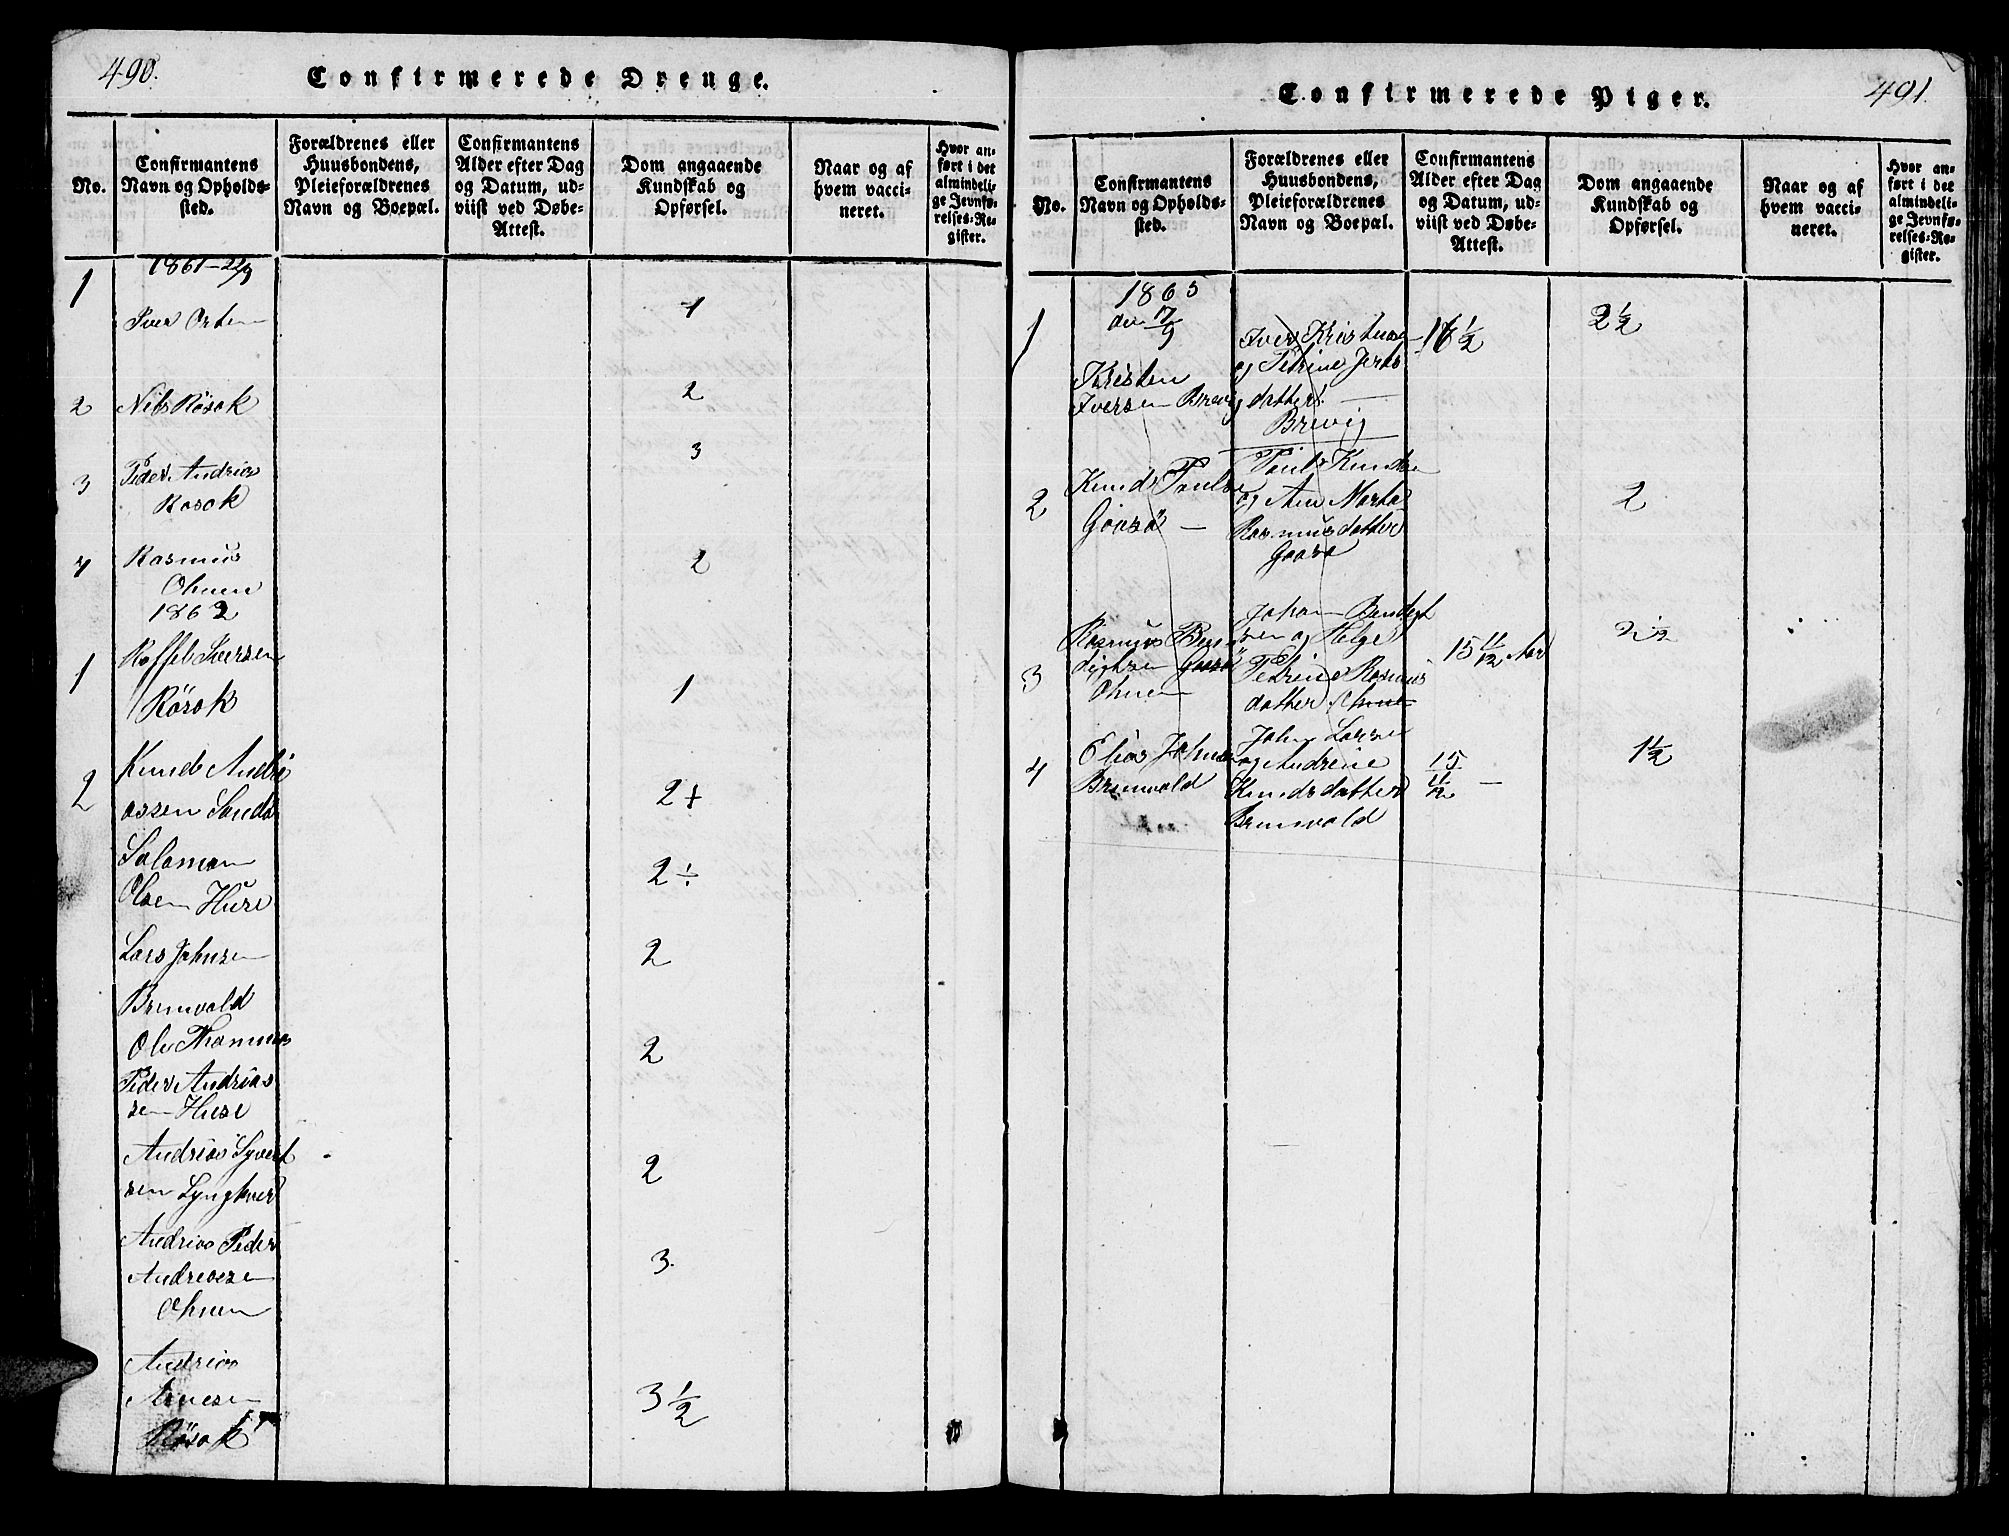 490.
Confirmerede Drenge.
No.
Confirmantens
Navn og Opholds-
sted.
Forældrenes eller
Huusbondens,
Pleieforældrenes
Navn og Boepæl.
Confirmantens
Alder efter Dag
og Datum, ud-
viist ved Døbe-
Attest.
Dom angaaende
Kundskab og
Opførsel.
Naar og af
hvem vacci-
neret.
Hvor an-
ført i det
almindeli-
ge Jevnfø-
relses-Re-
gister.
1861 - 22/9
1
Iver Orten
1
2 Nils Rösok
2
3 Peder Andrias
Rosok
3
4 Rasmus
Ohnen
2
1862
1 Roffel Iversen
Rösok
1
2 Knud Andri
assen Sanda
2 +
Salamon
Olsen Huse
2 ÷
Lars Johnsen
Brunvold
2
Ole Thommas
2
Peder Andrias
sen Huse
Andrias Syvert
sen Lynghver
2
Andrias Peder
Andriasen
Ohnen
3.
Andrias
Arnesen
Rösok
3 1/2
491.
Confirmerede Piger.
No.
Confirmantens
Navn og Opholds-
sted.
Forældrenes eller
Huusbondens,
Pleieforældrenes
Navn og Boepæl.
Confirmantens
Alder efter Dag
og Datum, ud-
viist ved Døbe-
Attest.
Dom angaaende
Kundskab og
Opførsel.
Naar og af
hvem vacci-
neret.
Hvor an-
ført i det
almindeli-
ge Jevnfø-
relses-Re-
gister.
1863
den 17/9
1
Kristen
Iversen Brevig
Iver Kristensen
og Petrine
datter
Brevig
16 1/2
2 1/2
2
Knud Poulsen
Goasö
Poul Knudsen
og Ane Marta
Rasmusdatter
Goasö
2
3
Rasmus Ben
digtsen Goasö
Ohnen
Johan Bendigt
sen og Helge
Petrine Rasmus
datter Ohnen
15 11/12 Aar
2 1/2
4
Elias Johnsen
Brunvold
John Larsen
og Andrine
Knudsdatter
Brunvold
15 11/12
1 1/2